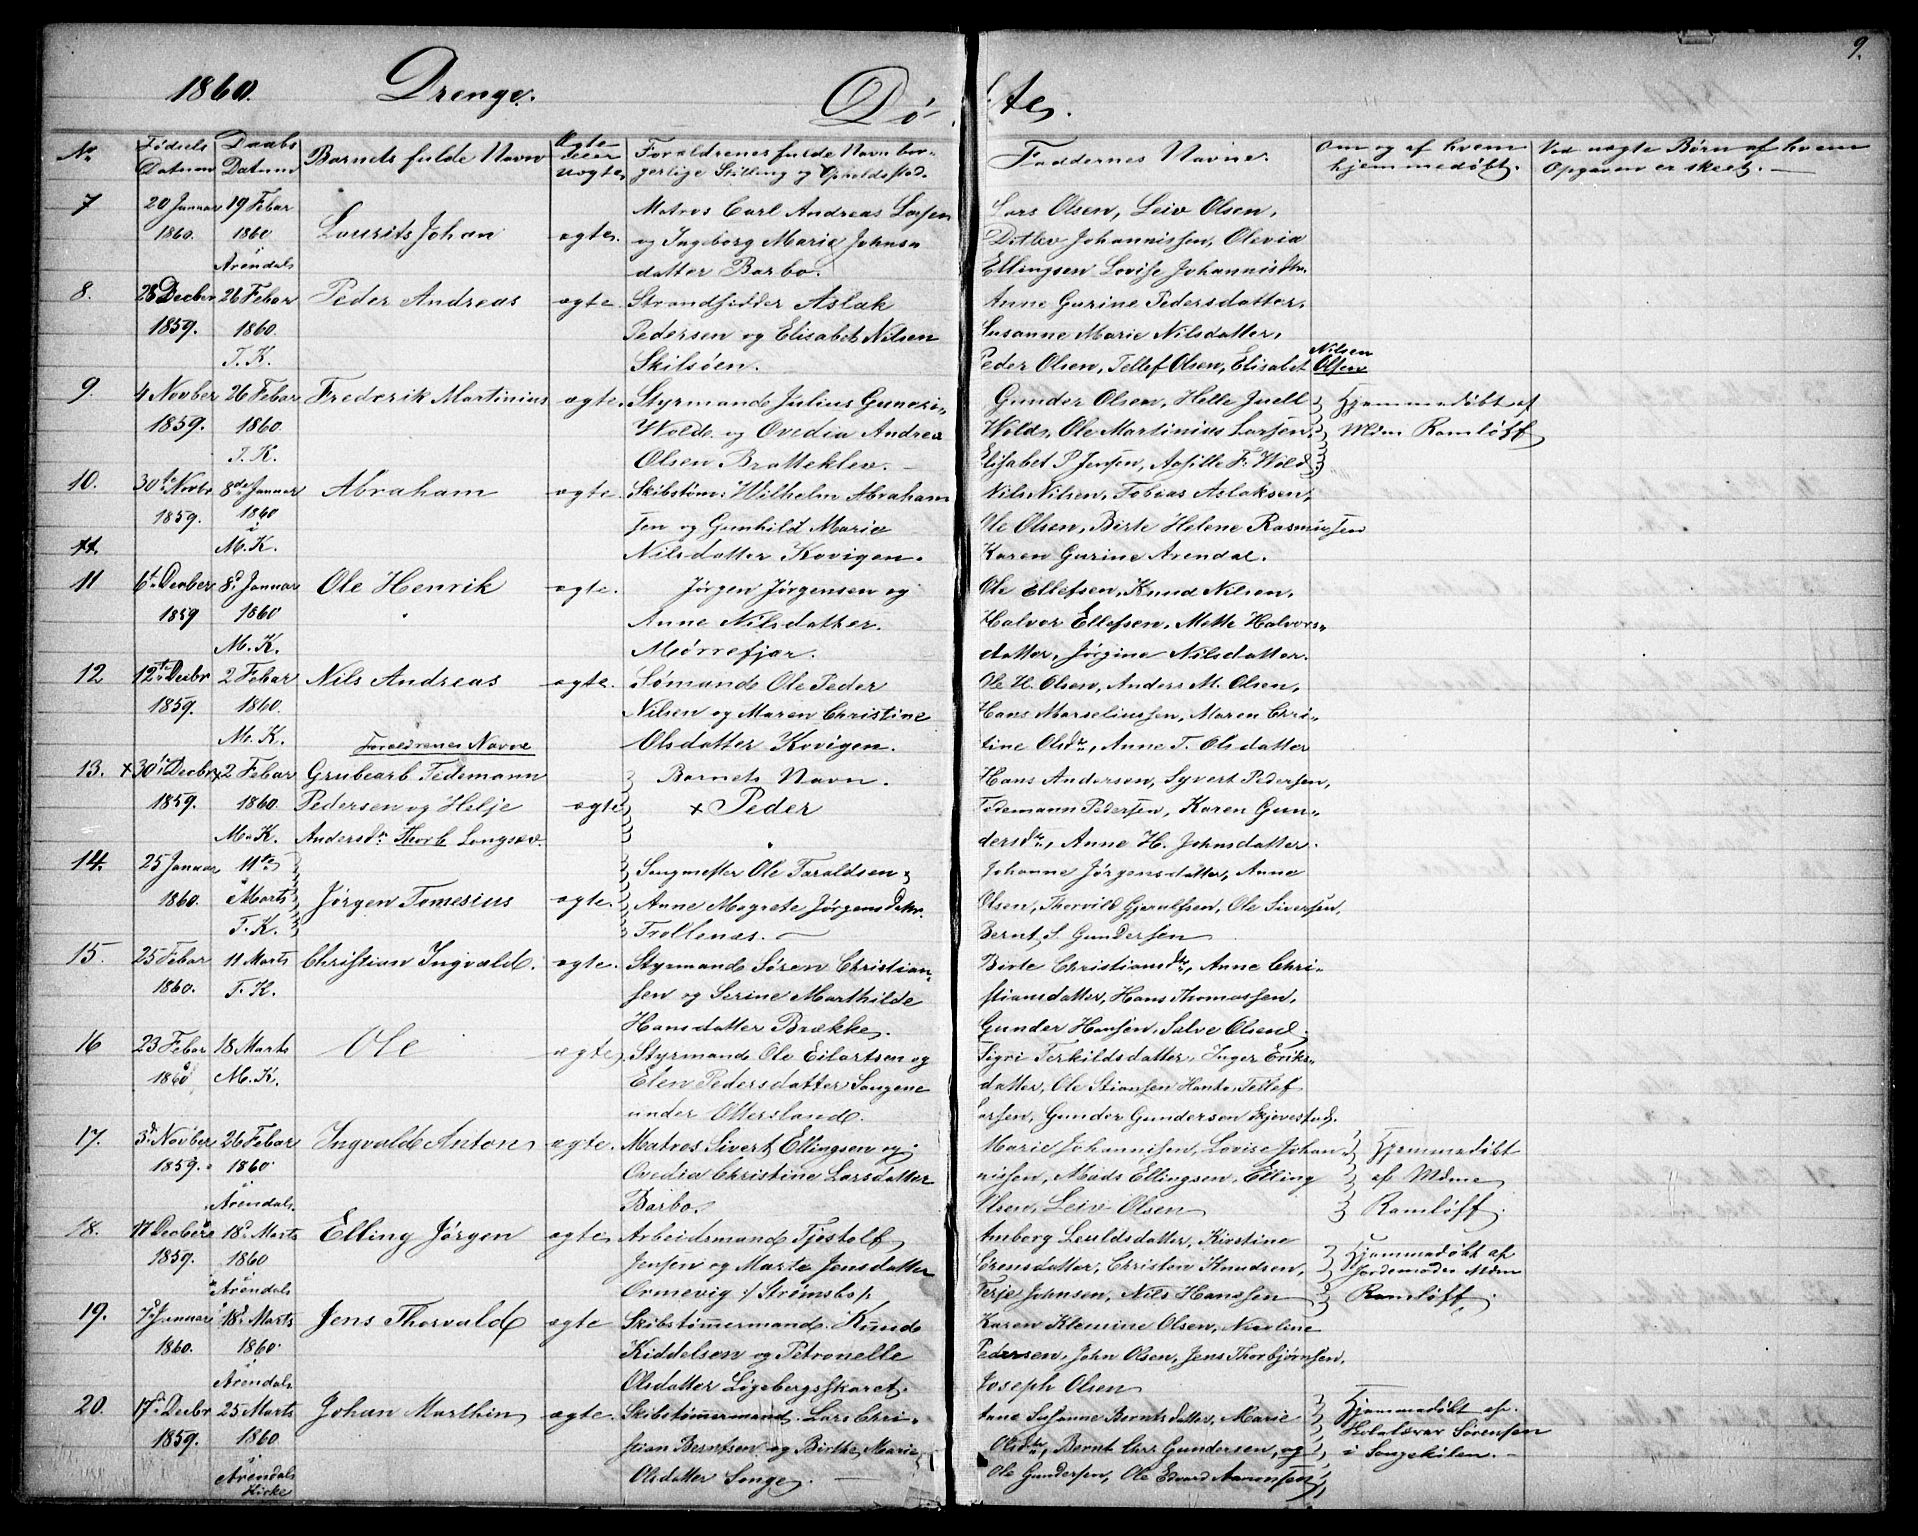 9.
1860. Drenge. Døbte.
No. Fødsels Datum Daabs Datum Barnets fulde Navn Ægte eller uægte Forældrenes fulde Navn bor-gerlige Stilling og Opholdssted. Faddernes Navne. Om og af hvem hjemmedøbt. Ved uægte Børn af hvem Opgaven er skeet.
7 20 Januar 19 Febar Matros Carl Andreas Larsen Lars Olsen, Leiv Olsen,
1860. 1860 Laurits Johan ægte. og Ingeborg Marie Johns- Ditlev Johannissen, Olevia
Arendal datter Barbo. Ellingsen Lovise Johannisdtr.
8. 28 Decber 26 Febar Peder Andreas ægte. Strandsidder Aslak Anne Gurine Pedersdatter,
1859. 1860. Pedersen og Elisabet Nilsen Susanne Marie Nilsdatter,
T. K. Skilsøen. Peder Olsen, Tellef Olsen, Elisabet Nilsen Olsen
9. 4 Novber 26 Febar Frederik Martinius ægte. Styrmand Julius Guneri- Gunder Olsen, Helle Juell Hjemmedøbt af
1859. 1860. Wold og Ovedia Andrea Wold, Ole Martinius Larsen, Mdm Ramløff
T. K. Olsen Bratteklev. Elisabet P Jensen, F. Wold
10. 30te Novbr 8de Januar Abraham ægte. Skibstøm: Wilhelm Abraham Nils Nilsen, Tobias Aslaksen,
1859. 1860 sen og Gunhild Marie Ole Olsen, Birte Helene Rasmussen
11. M. K. Nilsdatter Kovigen. Karen Gurine Arendal.
11 6te Decber 8d Januar Ole Henrik ægte. Jørgen Jørgensen og Ole Ellefsen, Knud Nilsen,
1859 1860 Anne Nilsdatter. Halvor Ellefsen, Mette Halvors-
M. K. Mørrefjær. datter, Jørgine Nilsdatter.
12 12te Decbr 2 Febar Nils Andreas ægte. Sømand Ole Peder Ole H. Olsen, Anders M. Olsen,
1859. 1860. Nilsen og Maren Christine Hans Marseliussen, Maren Chri-
M. K. Forældrenes Navne Olsdatter Kovigen. tine Olsdtr, Anne T. Olsdatter
13. x30 Decbr x2 Febar Grubearb Tedemann Barnets Navn. Hans Anderson, Syvert Pedersen,
1859. 1860. Pedersen og Helje ægte x Peder Tedemann Pedersen, Karen Gun-
M. K. Andersdr Thorb Longsev. dersdtr, Anne H. Johnsdatter.
14. 25 Januar 11te Saugmester Ole Taraldsen Johanne Jørgensdatter, Anne
1860. Marts Jørgen Tomesius ægte. Anne Magrete Jørgensdatter Olsen, Thorvild Gjerulfsen, Ole Siversen,
T. K. Trollenæs. Bernt S. Gundersen
15. 25 Febar 11 Marts Christian Ingvald. ægte. Styrmand Søren Christian- Birte Christiansdtr, Anne Chri-
1860. T. K. sen og Serine Marthilde stiansdatter, Hans Thomassen,
Hansdatter Brække. Gunder Hansen, Salve Olsen.
16 23 Febar 18 Marts Ole ægte Styrmand Ole Eilertsen og Sigri Terkildsdatter, Inger Eriks-
1860 M. K. Elen Pedersdatter Songene datter, Ole Stiansen Hante, Tellef
under Ottersland. Larsen, Gunder Gundersen Skjevestad.
17. 3d Novber 26 Febar Ingvald Anton ægte. Matros Sivert Ellingsen og Marie Johannisen, Lovise Johan- Hjemmedøbt
1859. 1860. Ovedia Christine Larsdatter nissen, Mads Ellingsen, Elling af Mdme
Arendal. Barbo. Olsen, Leiv Olsen Ramløff.
18. 17 Decber 18d Marts Elling Jørgen ægte. Arbeidsmand Tjøstolf Anborg Leuldsdatter, Kirstine Hjemmedøbt af
1859. 1860 Jensen og Marte Jensdatter Sørensdatter, Christen Knudsen, Jordemoder Mdm
Arendal Ormevig /: Strømsbo/: Terje Johnsen, Nils Hanssen Ramløff.
19. 7d Januar 18d Marts Jens Thorvald ægte Skibstømmermand. Knud Karen Klemine Olsen, Nicoline
1860. 1860. Kiddelsen og Petronelle Pedersen, John Olsen, Jens Thorbjørnsen,
Arendal Olsdatter Løgebergsskaret. Joseph Olsen
20. 17d Decbr 25 Marts Johan Marthin ægte. Skibstømmermand. Lars Chri- Susanne Berntsdatter, Marie Hjemmedøbt af
1859. 1860 stian Berntsen og Birthe Marie Olsdtr, Bernt Chr. Gundersen, og Sørensen
Arendals Kirke Olsdatter Songe. Ole Gundersen, Ole Edvard Aamonsen i Songekilen.